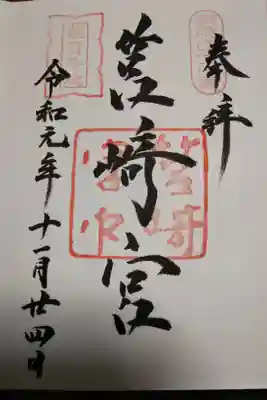 奉拝
筥崎宮
筥崎宮印
令和元年十一月廿四日